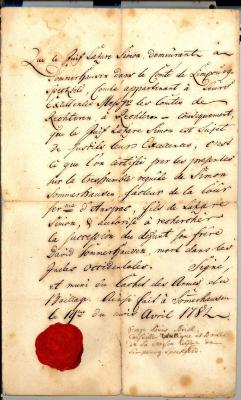 Que le Juif Lazare Simon demeurant à
Sommerhausen dans le Comté de Limpourg
Speckfeld, Comté appartenant à Leurs
Excellences Messgrs les Comtes de
Rechteren à Rechteren - conséquemment,
que le Juif Lazare Simon est Sujet
de Susdites leurs Excellences, c'est
ce que l'on attestés par les presentes
sur la tres humble requête de Simon
Sommerhausen, facteur de la Cour
d'Anspac, fils de Lazare
Simon, & autorisé à rechercher
la succession du défunt son frère
David Sommerhausen, mort dans les
Indes Occidentales. Signé,
et muni du cachet des Armes du
Bailliage. Ainsi fait à Sommerhausen
le Avril 1782
Louis
Conseiller & Baillif
de la
Limpourg Speckfeld.